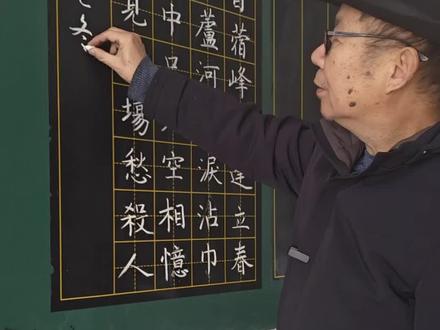 蓿峰逢立春
蘆河淚沾巾
中只空相憶
見場愁殺人
冬